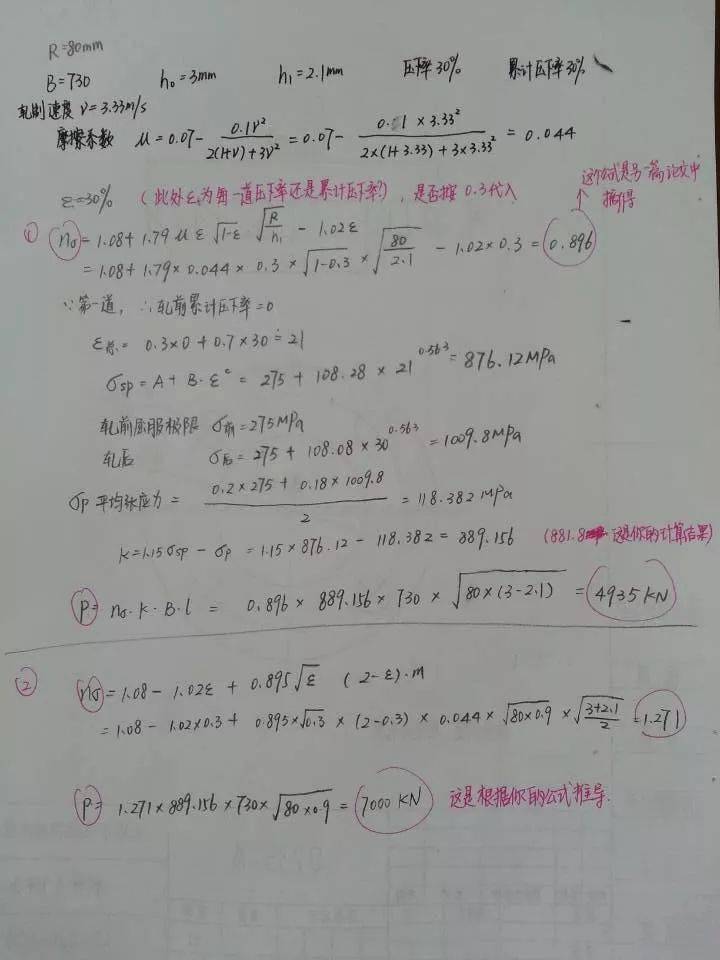 R=80mm
B=730 h₀=3mm h₁=2.1mm 压下率30% 累计压下率30%
轧制速度 V=3.33m/s
摩擦系数 μ=0.07- 0.1V²/(2(1+V)+3V²) = 0.07- (0.1×3.33²)/(2×(1+3.33)+3×3.33²) = 0.044
ε=30% (此处ε为每一道压下率还是累计压下率?),是否按0.3代入
这个公式是另一篇论文中
摘得
① nσ=1.08+1.79με√(1-ε) √(R/h₁) - 1.02ε
=1.08+1.79×0.044×0.3×√(1-0.3)×√(80/2.1) -1.02×0.3=0.896
∵第一道,∴轧前累计压下率=0
ε总= 0.3×0+0.7×30=21
σsp=A+B·εᶜ= 275+108.28×21^0.563=876.12MPa
轧前屈服极限 σ前=275MPa
轧后 σ后=275+108.08×30^0.563=1009.8MPa
σp平均张应力= (0.2×275+0.18×1009.8)/2 =118.382MPa
k=1.15σsp-σp=1.15×876.12-118.382=889.156 (881.8 这是你的计算结果)
P=nσ·k·B·l= 0.896×889.156×730×√(80×(3-2.1)) =4935KN
② nσ=1.08-1.02ε+0.895√ε (2-ε)·m
=1.08-1.02×0.3+0.895×√0.3×(2-0.3)×0.044×√(80×0.9)×√((3+2.1)/2)=1.271
P=1.271×889.156×730×√(80×0.9)=7000KN 这是根据你的公式推导.